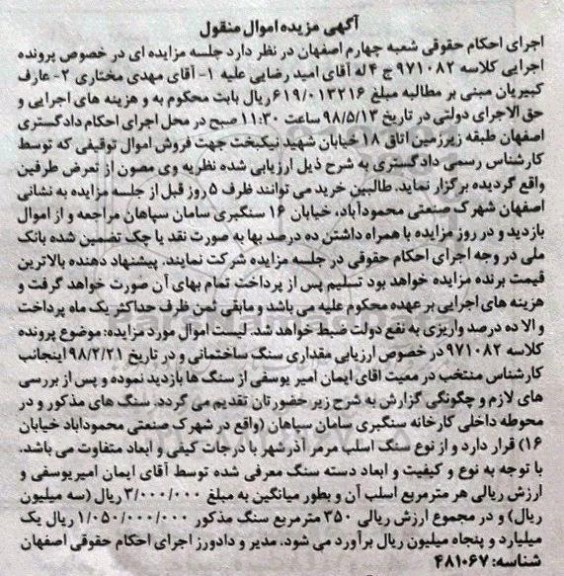 آگهی مزیده اموال منقول
اجرای احکام حقوقی شعبه چهارم اصفهان در نظر دارد جلسه مزایده ای در خصوص پرونده
اجرایی کلاسه ۹۷۱۰۸۲ ج ۴ له آقای امید رضایی علیه ۱- آقای مهدی مختاری ۲- عارف
کبیریان مبنی بر مطالبه مبلغ ۶۱۹/۰۱۳۲۱۶ ریال بابت محکوم به و هزینه های اجرایی و
حق الاجرای دولتی در تاریخ ۹۸/۵/۱۳ ساعت ۱۱:۳۰ صبح در محل اجرای احکام دادگستری
اصفهان طبقه زیرزمین اتاق ۱۸ خیابان شهید نیکبخت جهت فروش اموال توقیفی که توسط
کارشناس رسمی دادگستری به شرح ذیل ارزیابی شده نظریه وی مصون از تعرض طرفین
واقع گردیده برگزار نماید. طالبین خرید می توانند ظرف ۵ روز قبل از جلسه مزایده به نشانی
اصفهان شهرک صنعتی محمودآباد، خیابان ۱۶ سنگبری سامان سپاهان مراجعه و از اموال
بازدید و در روز مزایده با همراه داشتن ده درصد بها به صورت نقد یا چک تضمین شده بانک
ملی در وجه اجرای احکام حقوقی در جلسه مزایده شرکت نمایند. پیشنهاد دهنده بالاترین
قیمت برنده مزایده خواهد بود تسلیم پس از پرداخت تمام بهای آن صورت خواهد گرفت و
هزینه های اجرایی بر عهده محکوم علیه می باشد و مابقی ثمن ظرف حداکثر یک ماه پرداخت
و الا ده درصد واریزی به نفع دولت ضبط خواهد شد. لیست اموال مورد مزایده: موضوع پرونده
کلاسه ۹۷۱۰۸۲ در خصوص ارزیابی مقداری سنگ ساختمانی و در تاریخ ۹۸/۲/۲۱ اینجانب
کارشناس منتخب در معیت اقای ایمان امیر یوسفی از سنگ ها بازدید نموده و پس از بررسی
های لازم و چگونگی گزارش به شرح زیر حضورتان تقدیم می گردد. سنگ های مذکور و در
محوطه داخلی کارخانه سنگبری سامان سپاهان (واقع در شهرک صنعتی محمودآباد خیابان
۱۶) قرار دارد و از نوع سنگ اسلب مرمر آذرشهر با درجات کیفی و ابعاد متفاوت می باشد.
با توجه به نوع و کیفیت و ابعاد دسته سنگ معرفی شده توسط آقای ایمان امیریوسفی و
ارزش ریالی هر مترمربع اسلب آن و بطور میانگین به مبلغ ۳/۰۰۰/۰۰۰ ریال (سه میلیون
ریال) و در مجموع ارزش ریالی ۳۵۰ مترمربع سنگ مذکور ۱/۰۵۰/۰۰۰/۰۰۰ ریال یک
میلیارد و پنجاه میلیون ریال برآورد می شود. مدیر و دادورز اجرای احکام حقوقی اصفهان
شناسه: ۴۸۱۰۶۷